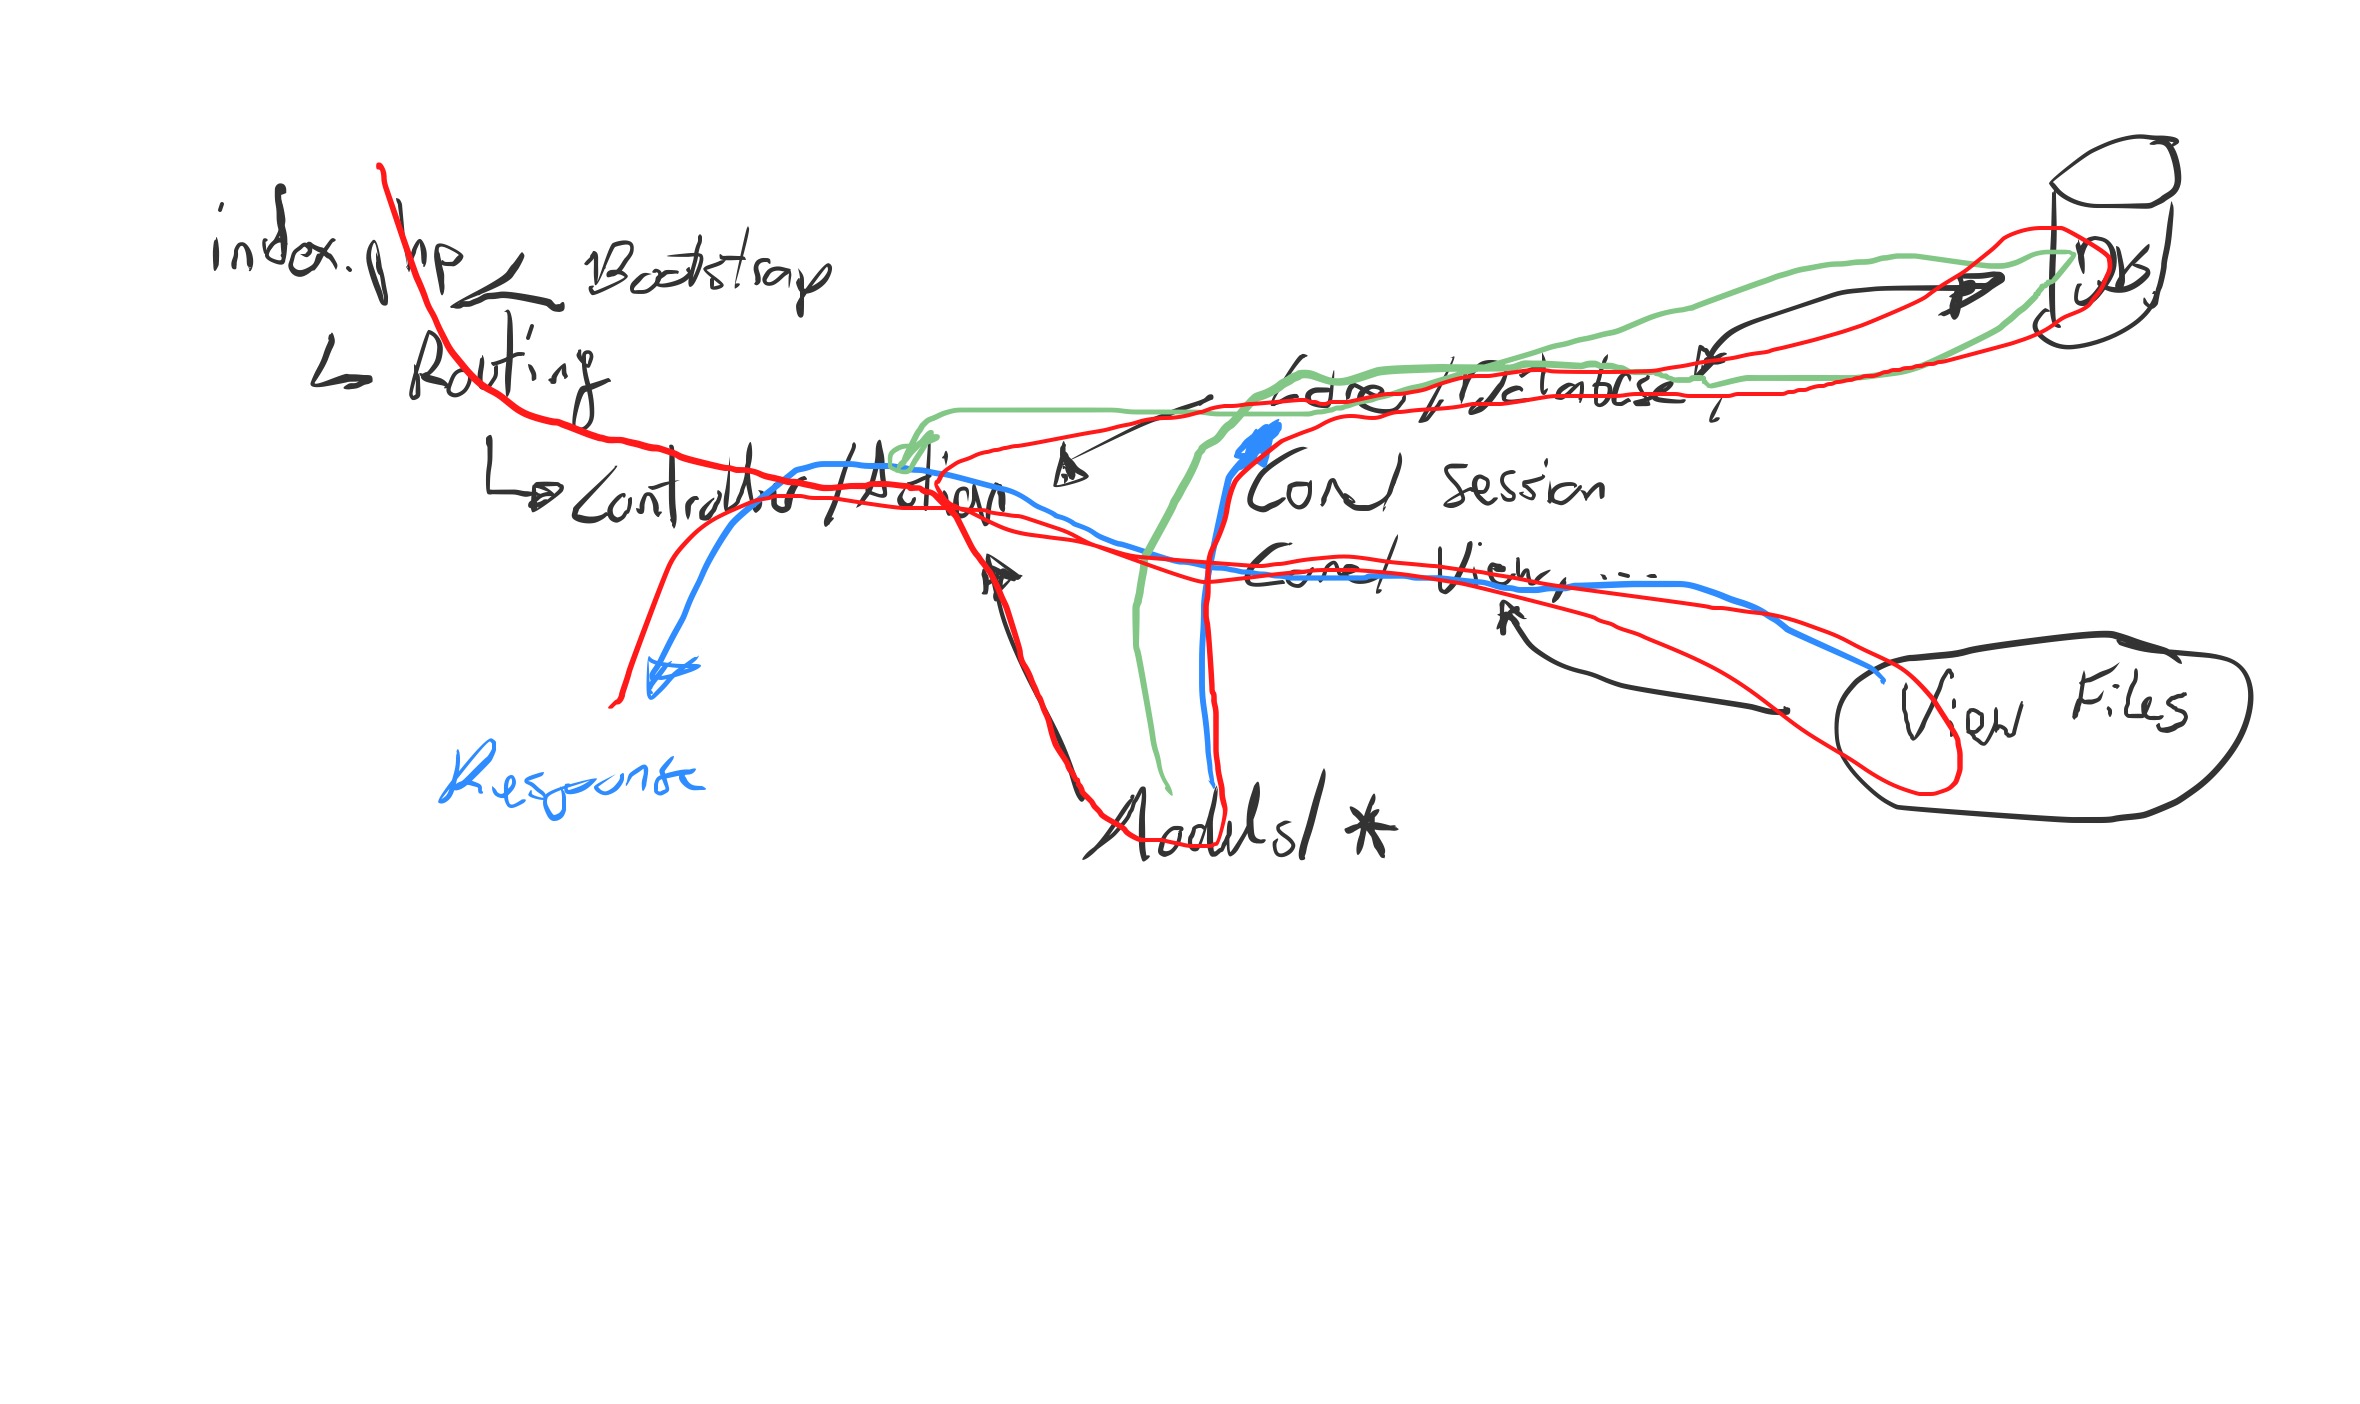 index.php
Bootstrap
Routing
Controller / Action
Core / Database,
Core / Session
Core / View, ...
DB
View Files
Models / *
Response